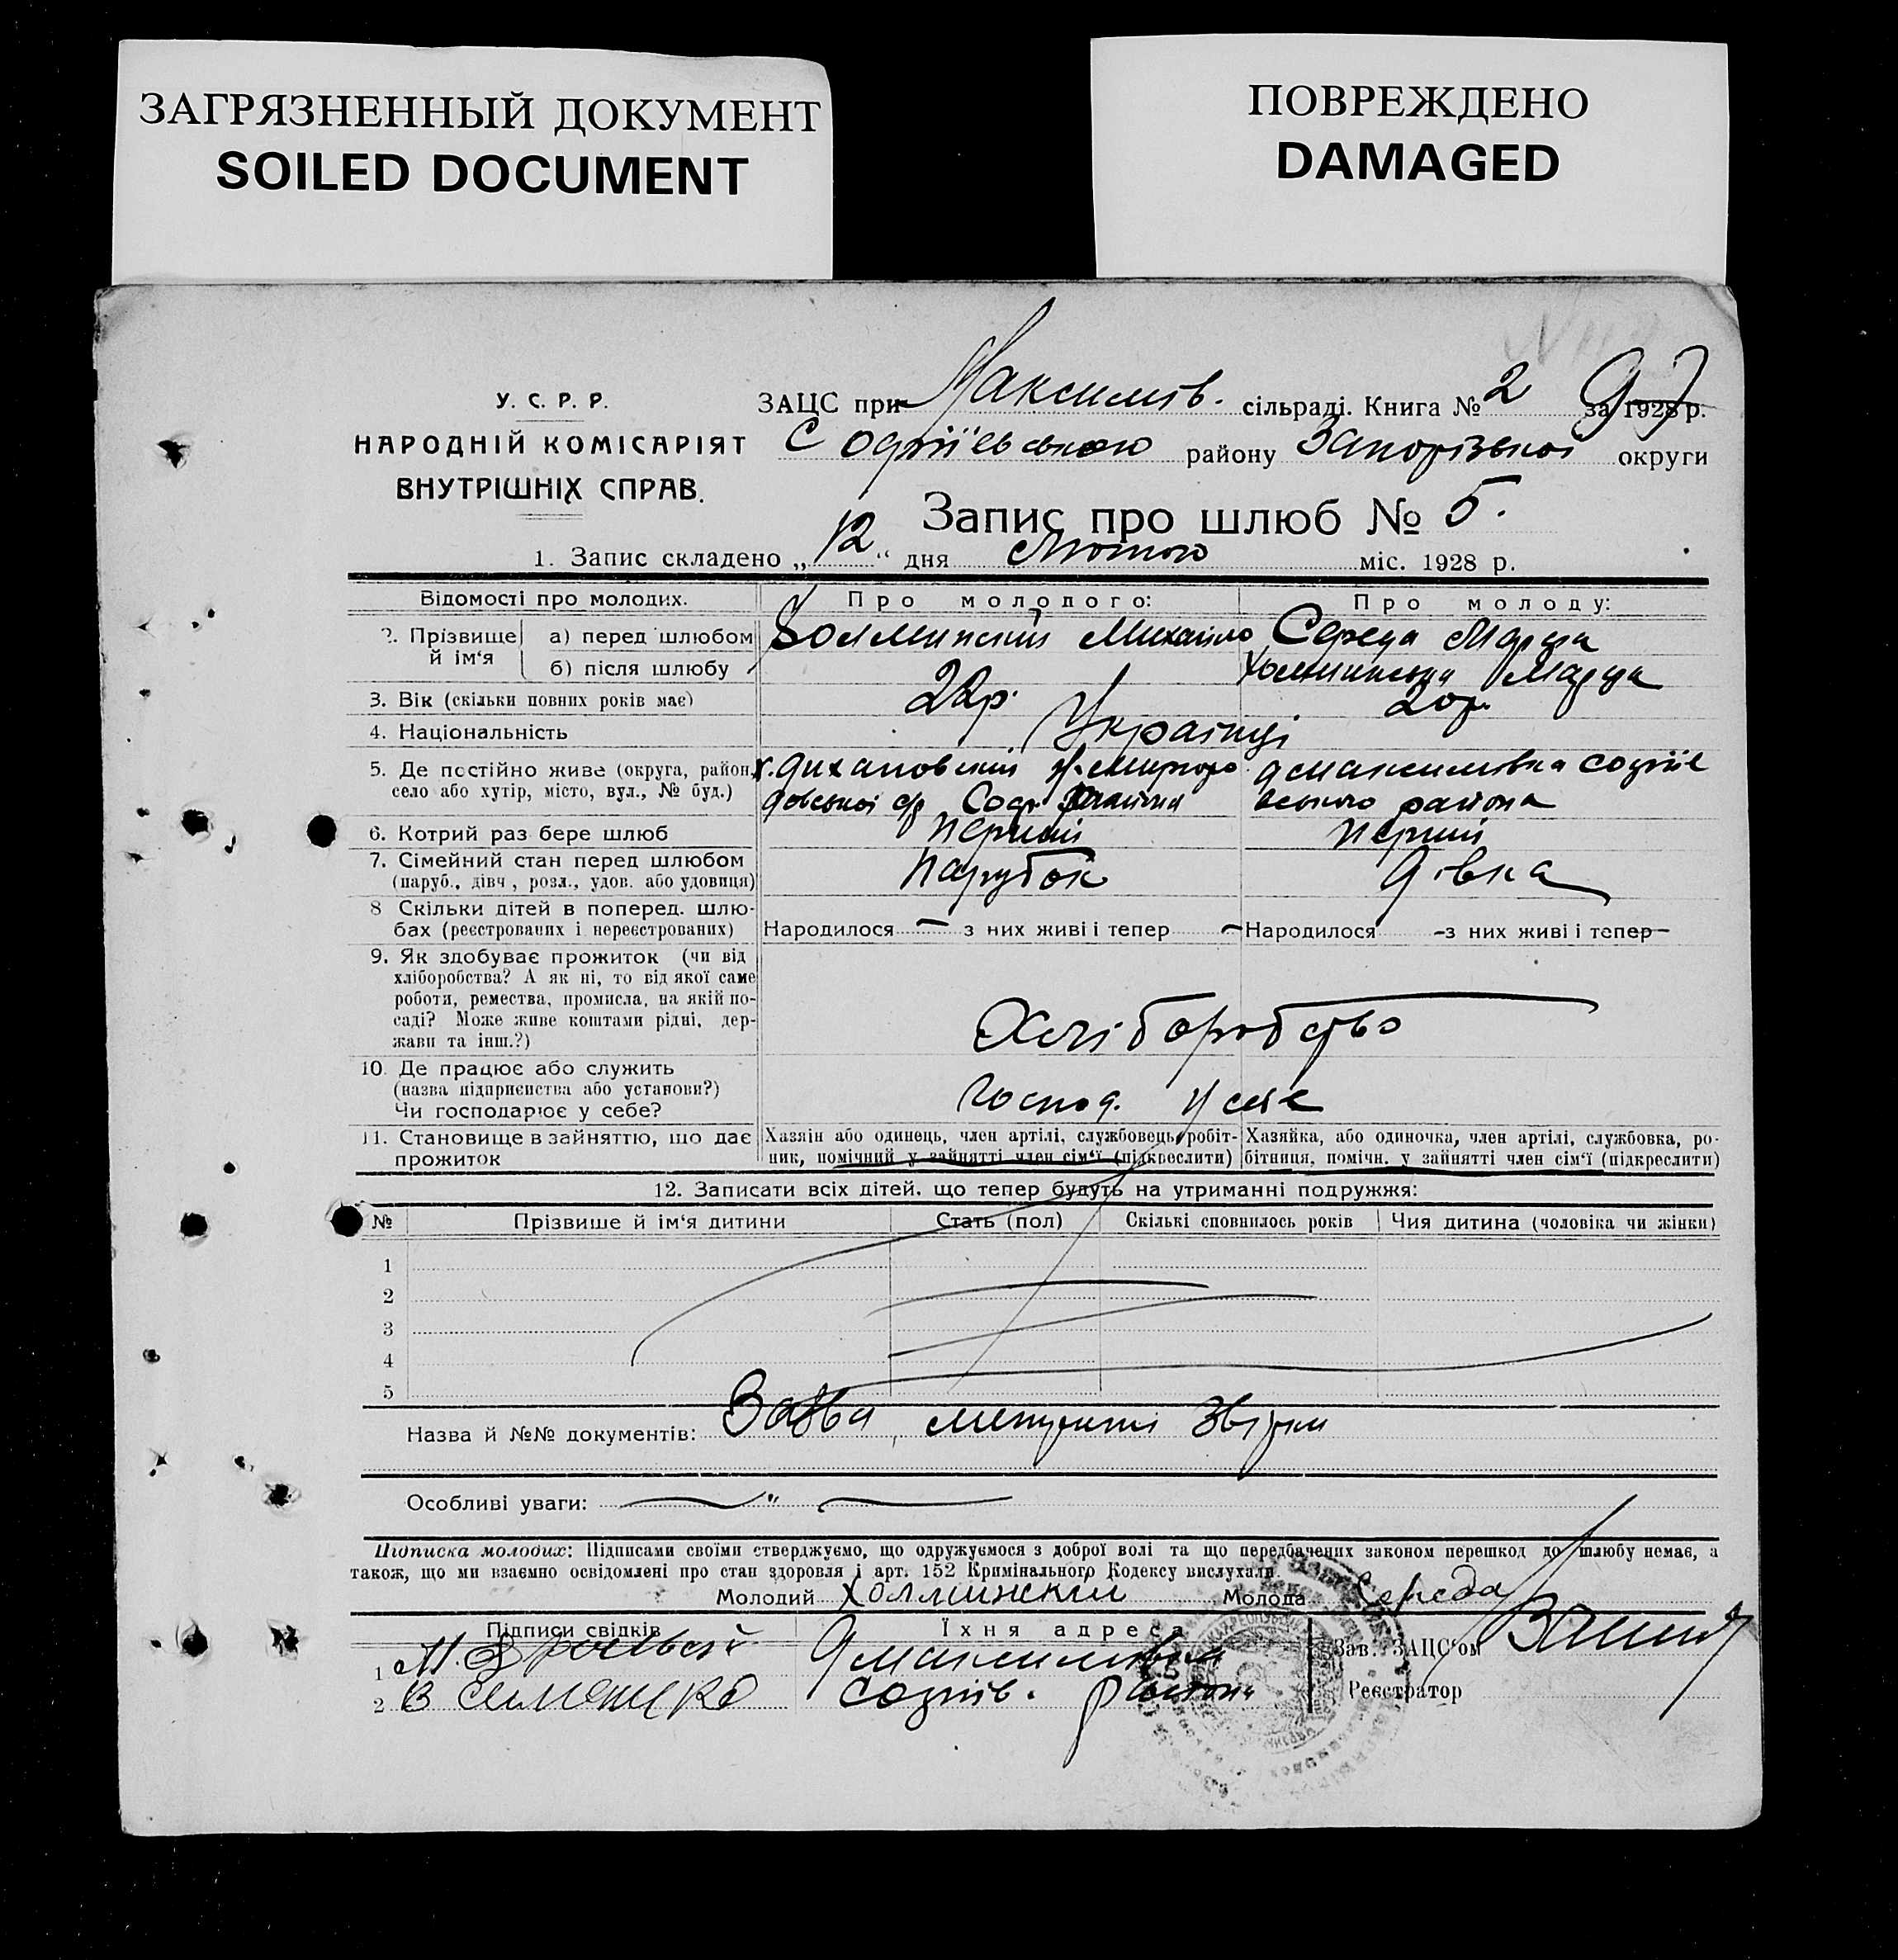 ЗАГРЯЗНЕННЫЙ ДОКУМЕНТ
SOILED DOCUMENT
ПОВРЕЖДЕНО
DAMAGED
У. С. Р. Р.
НАРОДНІЙ КОМІСАРІЯТ
ВНУТРІШНІХ СПРАВ.
ЗАЦС при Максимів. сільраді. Книга № 2 за 1928 р.
Софіївського району Запорізької округи
Запис про шлюб № 5.
1. Запис складено „12“ дня Лютого міс. 1928 р.
Відомості про молодих. Про молодого: Про молоду:
2. Прізвище й ім‘я
а) перед шлюбом Михайло Середа Марфа
б) після шлюбу Марфа
3. Вік (скільки повних років має) 22р. 20р.
4. Національність Українці
5. Де постійно живе (округа, район, село або хутір, місто, вул., № буд.)
района
6. Котрий раз бере шлюб перший перший
7. Сімейний стан перед шлюбом (паруб., дівч., розл., удов. або удовиця) Парубок Дівка
8 Скільки дітей в поперед. шлюбах (реєстрованих і нереєстрованих) Народилося — з них живі і тепер — Народилося — з них живі і тепер —
9. Як здобуває прожиток (чи від
хліборобства? А як ні, то від якої саме
роботи, ремества, промисла, на якій по-
саді? Може живе коштами рідні, дер-
жави та інш.?)
Хліборобство
10. Де працює або служить
(назва підприємства або установи?)
Чи господарює у себе?
Господ. у себе
11. Становище в зайняттю, що дає прожиток
Хазяїн або одинець, член артілі, службовець, робіт-
ник, помічний у зайнятті член сім‘ї (підкреслити)
Хазяйка, або одиночка, член артілі, службовка, ро-
бітниця, помічн. у зайнятті член сім‘ї (підкреслити)
12. Записати всіх дітей, що тепер будуть на утриманні подружжя:
№ Прізвище й ім‘я дитини Стать (пол) Скількі сповнилось років Чия дитина (чоловіка чи жінки)
1
2
3
4
5
Назва й №№ документів:
Особливі уваги: — " —
Підписка молодих: Підписами своїми стверджуємо, що одружуємося з доброї волі та що передбачених законом перешкод до шлюбу немає, а
також, що ми взаємно освідомлені про стан здоровля і арт. 152 Кримінального Кодексу вислухали.
Молодий Холминский Молода Середа
Підписи свідків Їхня адреса
1
2
Зав. ЗАЦС‘ом
Реєстратор